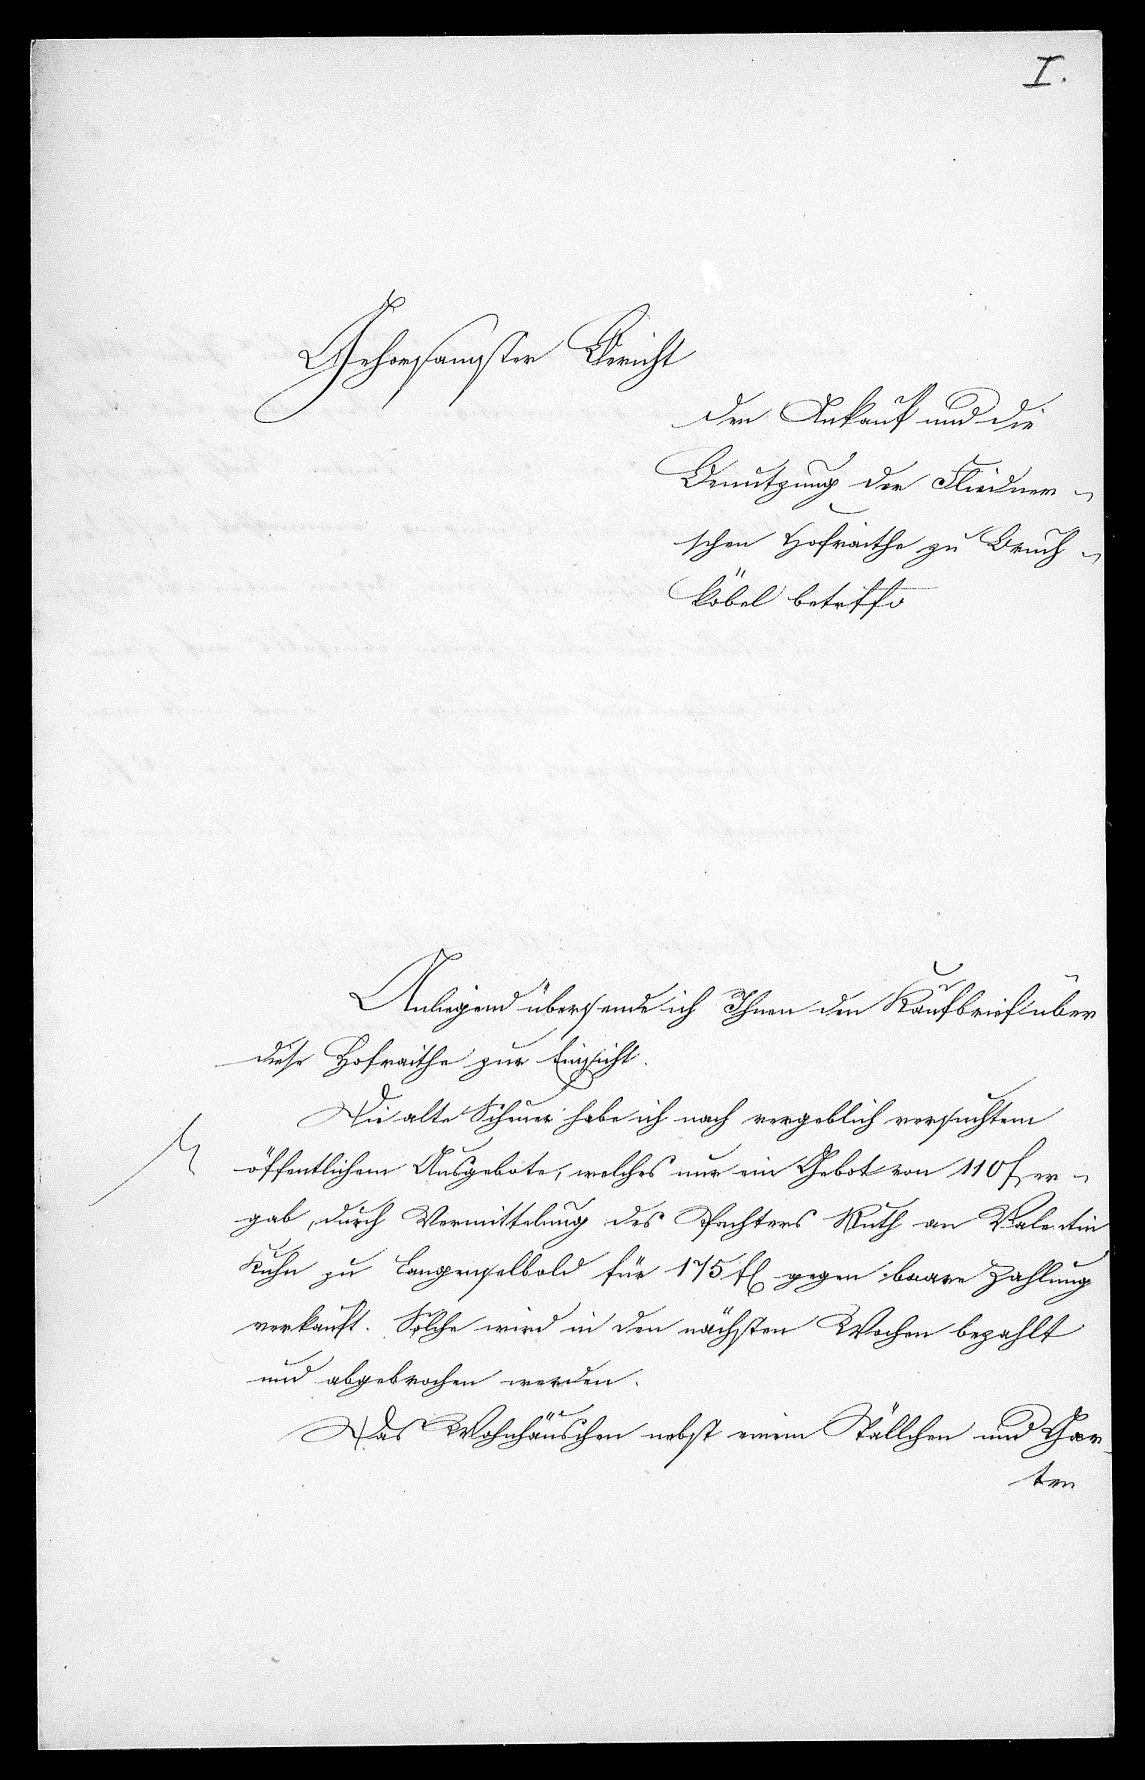 I.
Gehorsamster Bericht
den Ankauf und die
Benutzung der Fliedner-
schen Hofraithe zu Bruch-
köbel betrffd
Anliegend übersende ich Ihnen den Kaufbrief über
diese Hofraithe zur Einsicht.
Die alte Scheuer habe ich nach vergeblich versuchtem
öffentlichem Ausgebote, welches nur ein Gebot von 110 f er-
gab, durch Vermittelung des Pachters Ruth an Valentin
Kuhn zu Langenselbold für 175 fl gegen baare Zahlung
verkauft. Solche wird in den nächsten Wochen bezahlt
und abgebrochen werden.
Das Wohnhäuschen nebst einem Ställchen und Gar-
ten